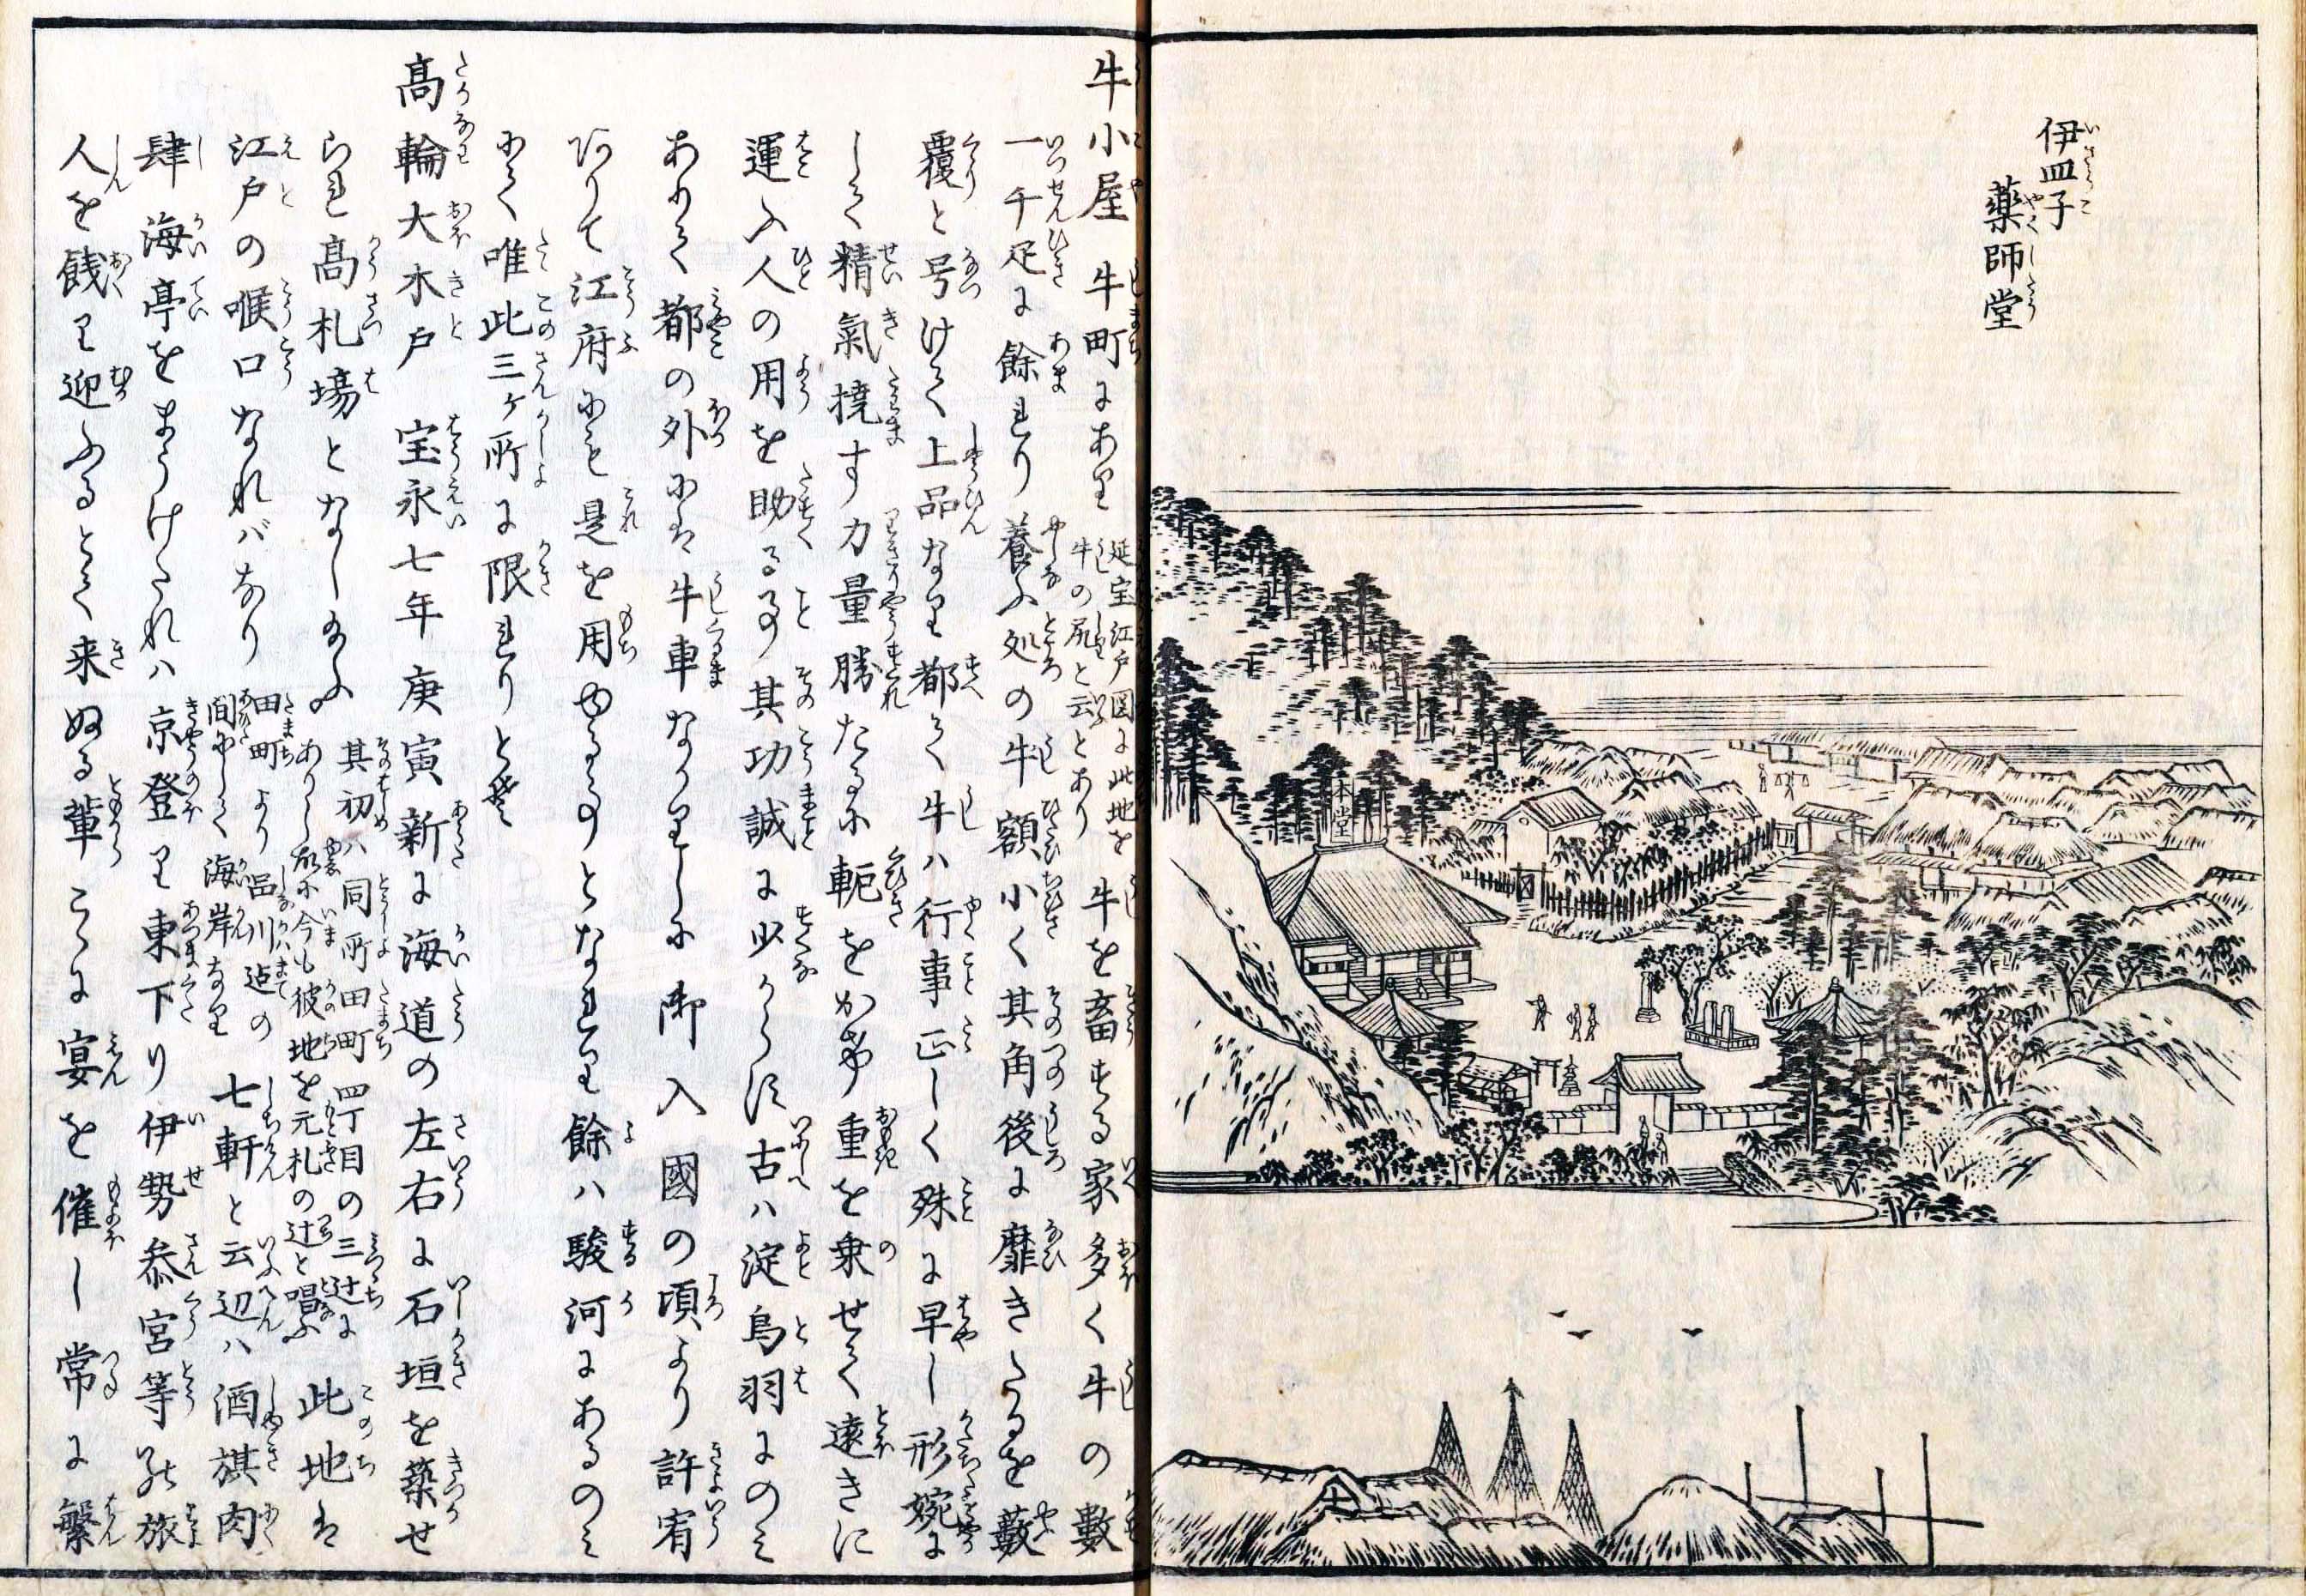 伊皿子
薬師堂
本堂
牛小屋 牛町にあり 延宝江戸図に此地を
牛の尻と云とあり
牛を畜する家多く牛の數
一千疋に餘れり養ふ処の牛額小く其角後に靡きたるを藪
覆と号けて上品なり都て牛ハ行事正しく殊に早し形婉に
して精氣撓す力量勝たるに軛をかけ重を乗せて遠きに
運ふ人の用を助る事其功誠に少からす古ハ淀鳥羽にのミ
ありて都の外にハ牛車なかりしに御入國の頃より許宥
ありて江府にも是を用ゆる事となれり餘ハ駿河にあるのミ
にて唯此三ヶ所に限れりとそ
髙輪大木戸 宝永七年庚寅新に海道の左右に石垣を築せ
られ髙札場となし給ふ
其初ハ同所田町四丁目の三辻に
ありし故に今も彼地を元札の辻と唱ふ
此地ハ
江戸の喉口なれバなり
田町より品川迠の
間にして海岸なり
七軒と云辺ハ酒旗肉
肆海亭をまうけたれハ京登り東下り伊勢参宮等の旅
人を餞り迎ふるとて来ぬる輩こゝに宴を催し常に繁